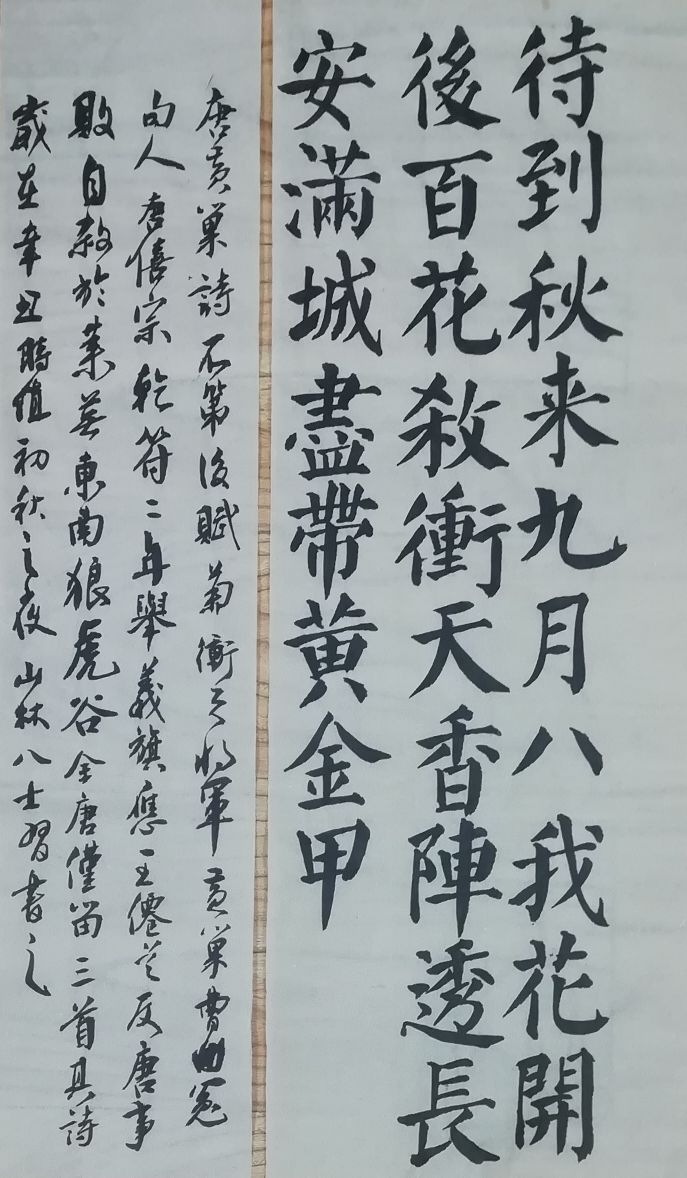 待到秋来九月八我花開
後百花殺衝天香陣透長
安滿城盡帶黄金甲
唐黄巢詩不第後賦菊衝天將軍黄巢曹州冤
句人唐僖宗乾符二年舉義旗應王僊芝反唐事
敗自殺於莱芜東南狼虎谷全唐僅留三首其詩
歲在辛丑時值初秋之夜山林八士習書之